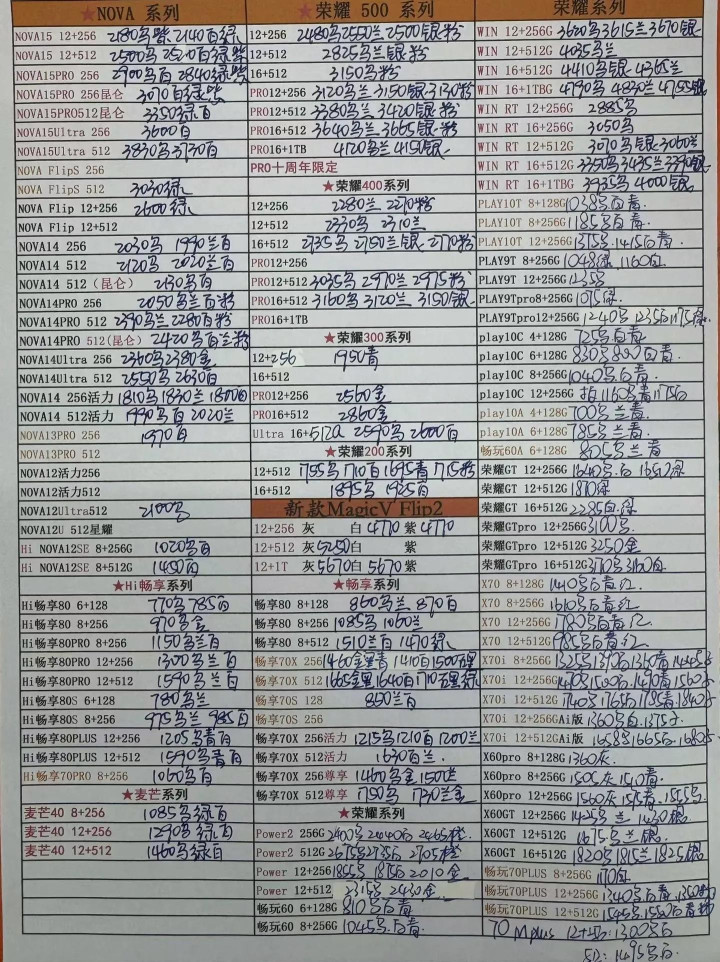 ★NOVA 系列
NOVA15 12+256 2180乌紫 2140百绿
NOVA15 12+512 2500乌 2520百绿紫
NOVA15PRO 256 2900乌百 2840绿紫
NOVA15PRO 256昆仑 3070百绿紫
NOVA15PRO512昆仑 3350绿百
NOVA15Ultra 256 3600百
NOVA15Ultra 512 3830乌3730百
NOVA FlipS 256
NOVA FlipS 512 3030绿
NOVA Flip 12+256 2600绿
NOVA Flip 12+512
NOVA14 256 2030乌 1990兰百
NOVA14 512 2120乌 2020兰百
NOVA14 512 (昆仑) 2130乌百
NOVA14PRO 256 2050乌兰百粉
NOVA14PRO 512 2390乌兰2280百粉
NOVA14PRO 512(昆仑) 2420乌百兰粉
NOVA14Ultra 256 2360乌2380金
NOVA14Ultra 512 2550乌2630百
NOVA14 256活力 1810乌1830兰1800百
NOVA14 512活力 1990乌百2020兰
NOVA13PRO 256 1970百
NOVA13PRO 512
NOVA12活力256
NOVA12活力512
NOVA12Ultra512 2100乌
NOVA12U 512星耀
Hi NOVA12SE 8+256G 1020乌百
Hi NOVA12SE 8+512G 1400百
★Hi畅享系列
Hi畅享80 6+128 770乌785百
Hi畅享80 8+256 970乌金
Hi畅享80PRO 8+256 1150乌兰百
Hi畅享80PRO 12+256 1300乌兰百
Hi畅享80PRO 12+512 1590乌兰百
Hi畅享80S 6+128 780乌兰
Hi畅享80S 8+256 975乌兰 985百
Hi畅享80PLUS 12+256 1205乌青百
Hi畅享80PLUS 12+512 1590乌青百
Hi畅享70PRO 8+256 1060乌百
★麦芒系列
麦芒40 8+256 1085乌绿百
麦芒40 12+256 1290乌绿百
麦芒40 12+512 1460乌绿百
★荣耀 500 系列
12+256 2480乌2550兰2500银粉
12+512 2825乌兰银粉
16+512 3150乌粉
PRO12+256 3120乌兰3150银3130粉
PRO12+512 3380乌兰3420银粉
PRO16+512 3640乌兰3665银粉
PRO16+1TB 4120乌兰4150银
PRO十周年限定
★荣耀400系列
12+256 2280兰 2270粉
12+512 2330乌 2310兰
16+512 2735乌2750兰银2770粉
PRO12+256
PRO12+512 3035乌2970兰2975粉
PRO16+512 3160乌3120兰 3150银
PRO16+1TB
★荣耀300系列
12+256 1950青
16+512
PRO12+256 2560金
PRO16+512 2860金
Ultra 16+512G 2590乌2600百
★荣耀200系列
12+512 1755乌1710百1695青1715粉
16+512 1895乌1925百
新款MagicV Flip2
12+256 灰 白4770 紫4770
12+512 灰5250白 紫
12+1T 灰5670白5670紫
★畅享系列
畅享80 8+128 860乌兰870百
畅享80 8+256 1085乌1060兰
畅享80 8+512 1510兰百1470绿
畅享70X 256
畅享70X 512
畅享70S 128 850兰百
畅享70S 256
畅享70X 256活力 1215乌1210百1200兰
畅享70X 512活力 1630百兰
畅享70X 256尊享 1460乌金1500兰
畅享70X 512尊享 1750乌 1730兰金
★荣耀系列
Power2 256G 2400乌2440百2465橙
Power2 512G 2675乌2735百2705橙
Power 12+256 1855乌1875百2010金
Power 12+512 2315乌2430金
畅玩60 6+128G 810乌百青
畅玩60 8+256G 1045乌百青
荣耀系列
WIN 12+256G 3620乌3615兰3670银
WIN 12+512G 4035乌兰
WIN 16+512G 4410乌银4365兰
WIN 16+1TBG 4790乌4830兰4755银
WIN RT 12+256G 2885乌
WIN RT 16+256G 3050乌
WIN RT 12+512G 3070乌银3060兰
WIN RT 16+512G 3350乌3435兰3390银
WIN RT 16+1TBG 3935乌4000银
PLAY10T 8+128G 1038乌百青
PLAY10T 8+256G 1185乌百青
PLAY10T 12+256G 1375乌1415百青
PLAY9T 8+256G 1048绿1160百
PLAY9T 12+256G 1235乌
PLAY9Tpro8+256G 1075绿
PLAY9Tpro12+256G 1240乌1235百1175绿
play10C 4+128G 725乌百青
play10C 6+128G 830乌800百青
play10C 8+256G 1040乌百青
play10C 12+256G 1160乌青1175百
play10A 4+128G 700乌兰青
play10A 6+128G 785乌兰青
畅玩60A 6+128G 805乌兰青
荣耀GT 12+256G 1640乌百1650绿
荣耀GT 12+512G 1870绿
荣耀GT 16+512G 2285百绿
荣耀GTpro 12+256G 3100乌
荣耀GTpro 12+512G 3250金
荣耀GTpro 16+512G 3170乌3160百
X70 8+128G 1410乌百青红
X70 8+256G 1610乌百青红
X70 12+256G 1780乌百青红
X70 12+512G 1985乌百青红
X70i 8+256G
X70i 12+256G
X70i 12+512G
X70i 12+256GAi版 1360乌百1375
X70i 12+512GAi版 1658乌1665百
X60pro 8+128G 1360灰
X60pro 8+256G 1505灰1510青
X60pro 12+256G 1560灰1575青
X60GT 12+256G 1425乌兰1430银
X60GT 12+512G 1675乌兰银
X60GT 16+512G 1820乌1815兰1825银
畅玩70PLUS 8+256G 1170百
畅玩70PLUS 12+256G 1340乌百青
畅玩70PLUS 12+512G 1545乌1550百青
70 Mplus 12+256: 1300乌百
512: 1495乌百